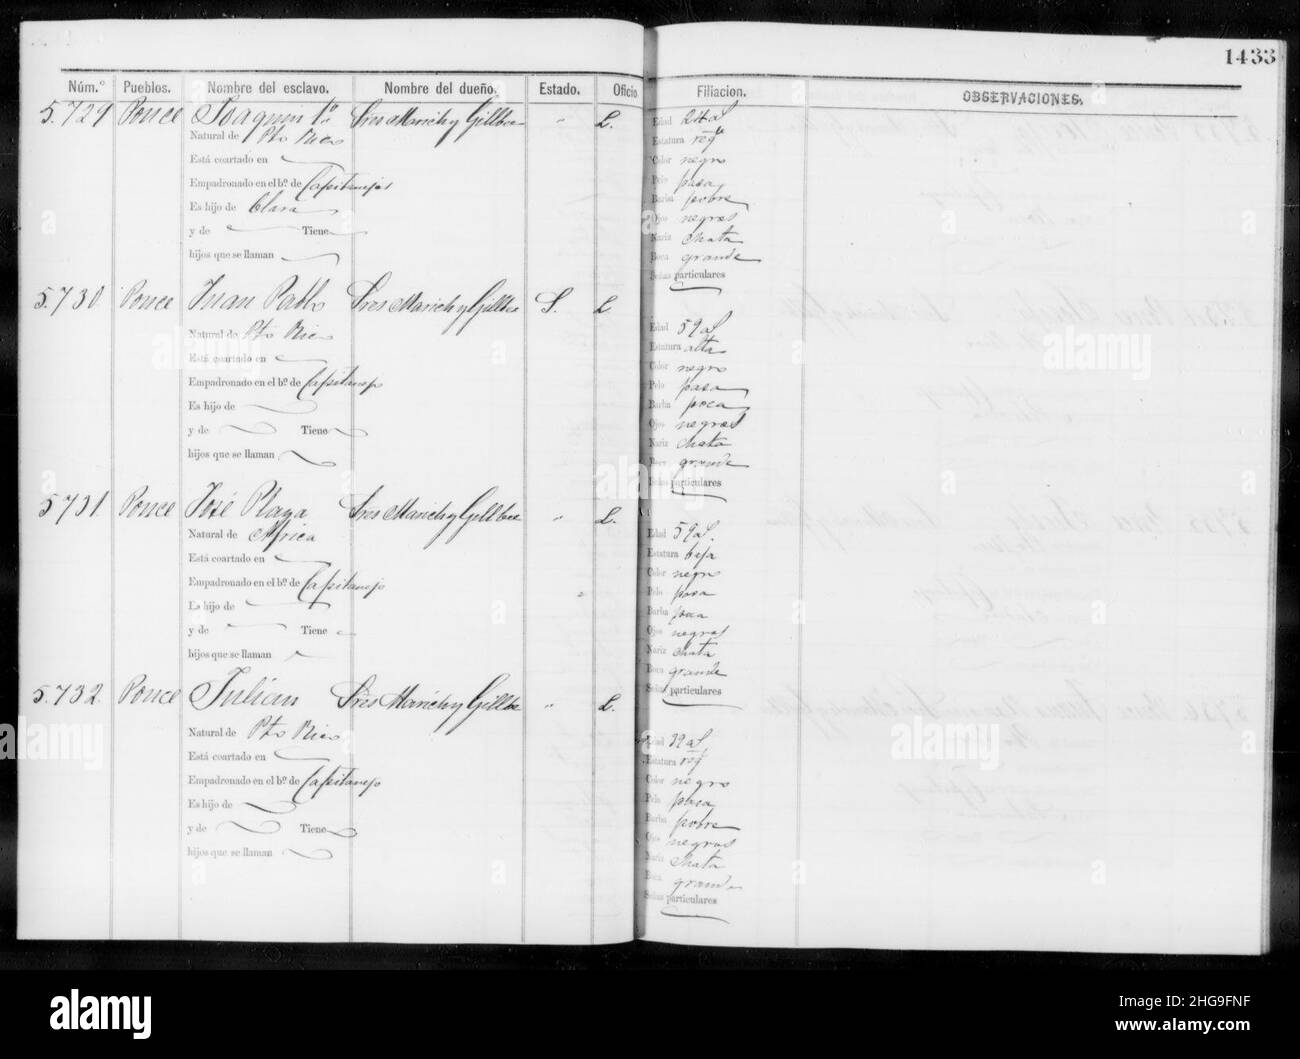 1433
Núm.º Pueblos. Nombre del esclavo. Nombre del dueño. Estado. Oficio Filiacion. OBSERVACIONES.
5.729 Ponce Joaquin 1º Sres Marich y Gillbee " L.
Natural de Pto Rico
Está coartado en
Empadronado en el bº. de Capitanejo
Es hijo de Clara
y de Tiene
hijos que se llaman
Edad 24 aS
Estatura reg
Color negro
Pelo pasa
Barba pobre
Ojos negros
Nariz chata
Boca grande
Señas particulares
5.730 Ponce Juan Pablo Sres Marich y Gillbee S. L
Natural de Pto Rico
Está coartado en
Empadronado en el bº. de Capitanejo
Es hijo de
y de Tiene
hijos que se llaman
Edad 59 aS
Estatura alta
Color negro
Pelo pasa
Barba poca
Ojos negros
Nariz chata
Boca grande
Señas particulares
5.731 Ponce José Playa Sres Marich y Gillbee " L.
Natural de Africa
Está coartado en
Empadronado en el bº. de Capitanejo
Es hijo de
y de Tiene
hijos que se llaman
Edad 59 aS.
Estatura baja
Color negro
Pelo pasa
Barba poca
Ojos negros
Nariz chata
Boca grande
Señas particulares
5.732 Ponce Julian Sres Marich y Gillbee " L.
Natural de Pto Rico
Está coartado en
Empadronado en el bº. de Capitanejo
Es hijo de
y de Tiene
hijos que se llaman
Edad 32 aS
Estatura reg
Color negro
Pelo pasa
Barba pobre
Ojos negros
Nariz chata
Boca grande
Señas particulares
alamy
Image ID: 2HG9FNF
www.alamy.com